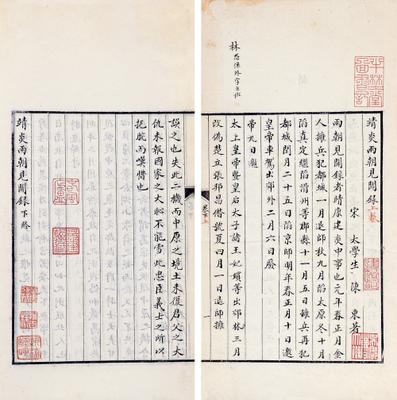 林恐係外字之訛
靖炎兩朝見聞錄上卷
宋 太學生 陳 東著
兩朝見聞錄者靖康建炎中事也元年春正月金
人擁兵犯都城一月退師秋九月陷太原冬十月
陷真定繼陷滑州等郡縣十一月五日 兵再犯
都城閏月二十五日陷京師明年春正月十日邀
皇帝車駕出郊外二月六日廢
帝九日邀
太上皇帝暨皇后太子諸王妃嬪等出郊林三月
改偽楚立張邦昌僭號夏四月一日退師擁
誤之也失此二機而中原之境土未復君父之大
仇未報國家之大恥不能雪此忠臣義士之所以
扼腕而嘆惜也
靖炎兩朝見聞錄下終